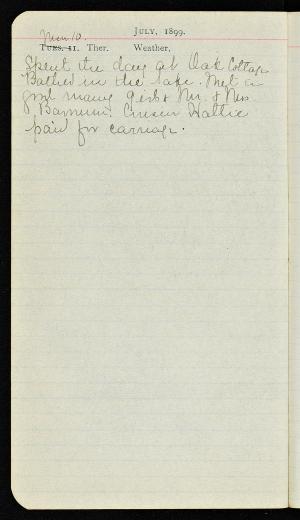 JULY, 1899.
Mon 10.
TUES. 11. Ther. Weather,
Spent the day at Oak Cottage
Bathed in the lake. Met a
good many girls & Mr. & Mrs.
Barnum. Cousin Hattie
paid for carriage.